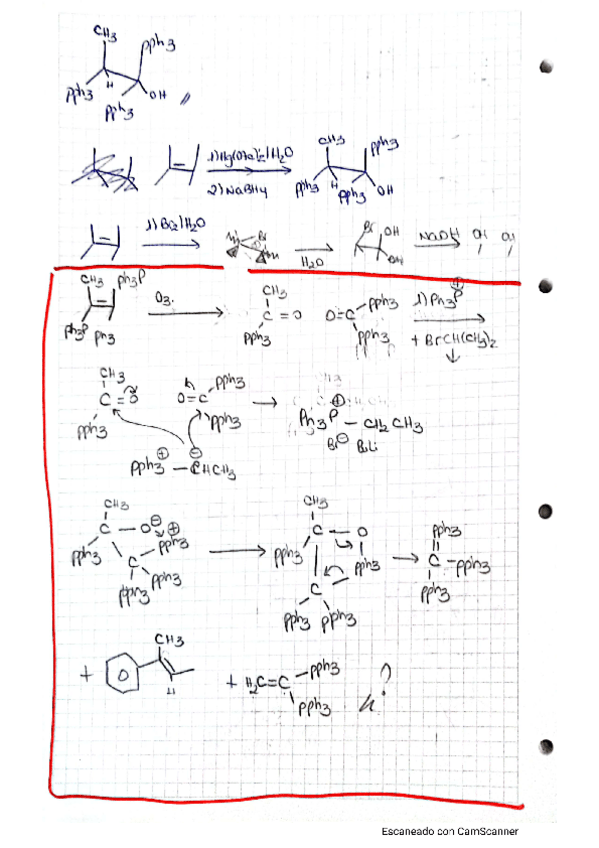 CH3 pph3
pph3 H OH
pph3
1) Hg(OAc)2/H2O CH3 pph3
2) NaBH4 pph3 H pph3 OH
1) Br2/H2O Br Br OH NaOH OH OH
H2O OH
CH3 Ph3P CH3
O3. C=O O=C pph3 1) Ph3P ⊕
Ph3P Ph3 pph3 pph3 + BrCH(CH3)2
CH3
C=O O=C pph3 ⊕
pph3 pph3 Ph3P – CH2CH3
pph3 ⊕ – ⊖ CHCH3 Br⊖ BuLi
CH3 CH3
C – O ⊖ ⊕ C – O pph3
pph3 C pph3 pph3 pph3 C – pph3
pph3 pph3 C pph3
pph3 pph3
CH3
+ H + H2C=C pph3 ?
pph3
Escaneado con CamScanner